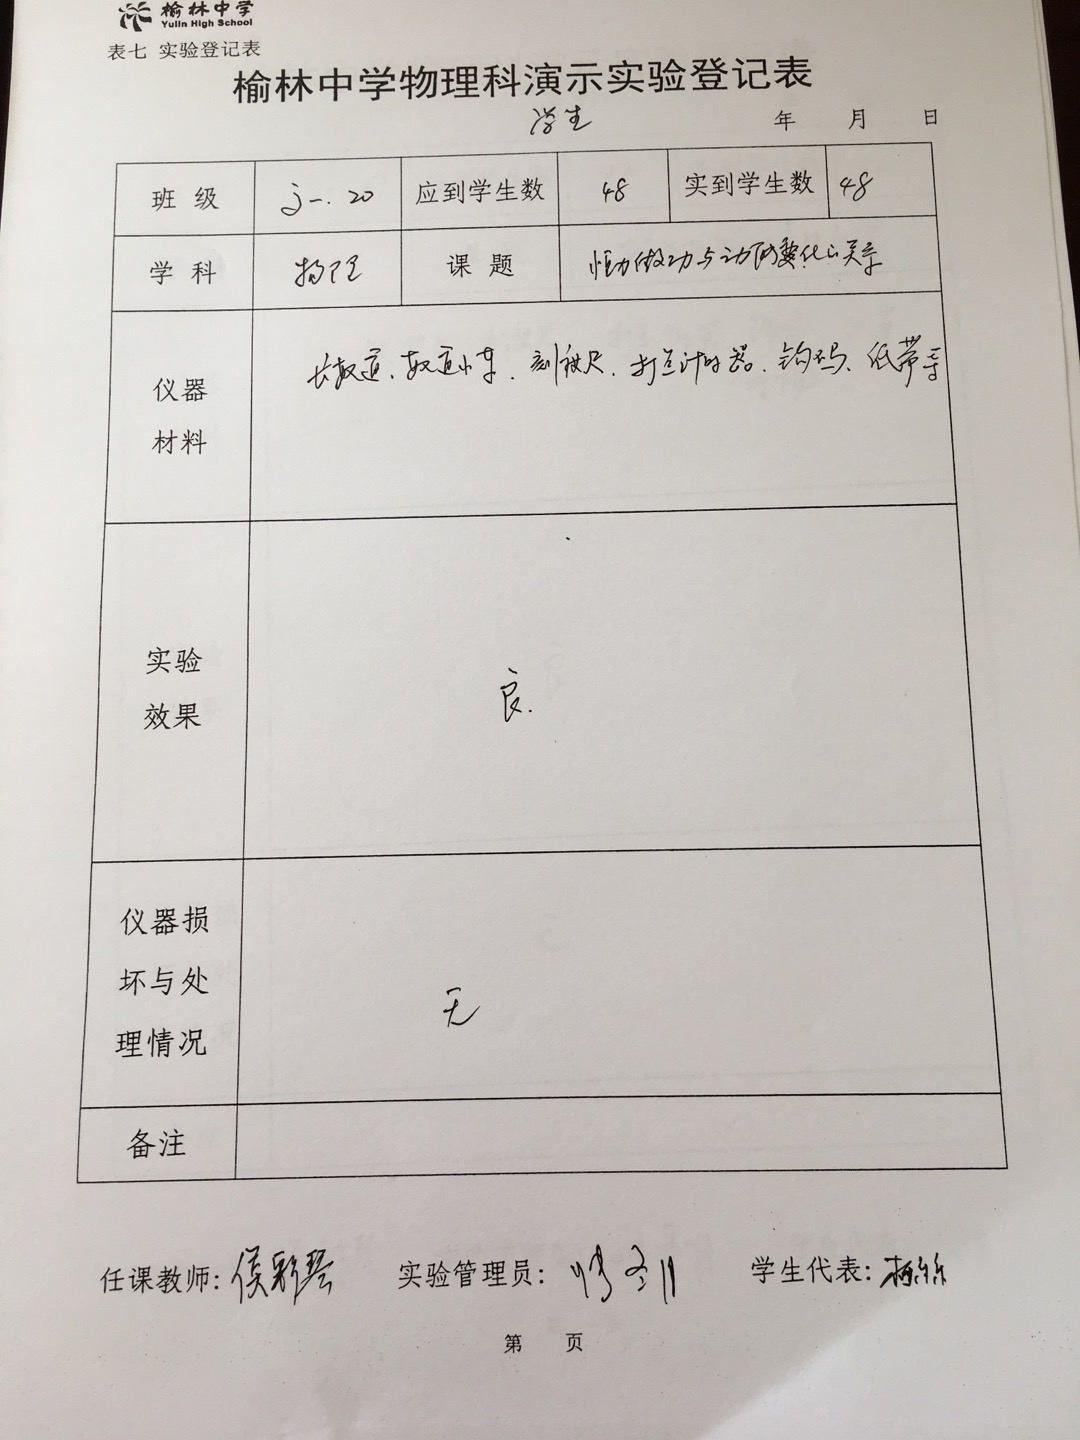 榆林中学
Yulin High School
表七 实验登记表
榆林中学物理科演示实验登记表
学生 年 月 日
班 级 高一.20 应到学生数 48 实到学生数 48
学 科 物理 课 题 恒力做功与动能变化的关系
仪器 长板道、轨道小车、刻度尺、打点计时器、钩码、纸带等
材料
实验
效果 良.
仪器损
坏与处
理情况 无
备注
任课教师: 侯彩琴 实验管理员: 学生代表:
第 页